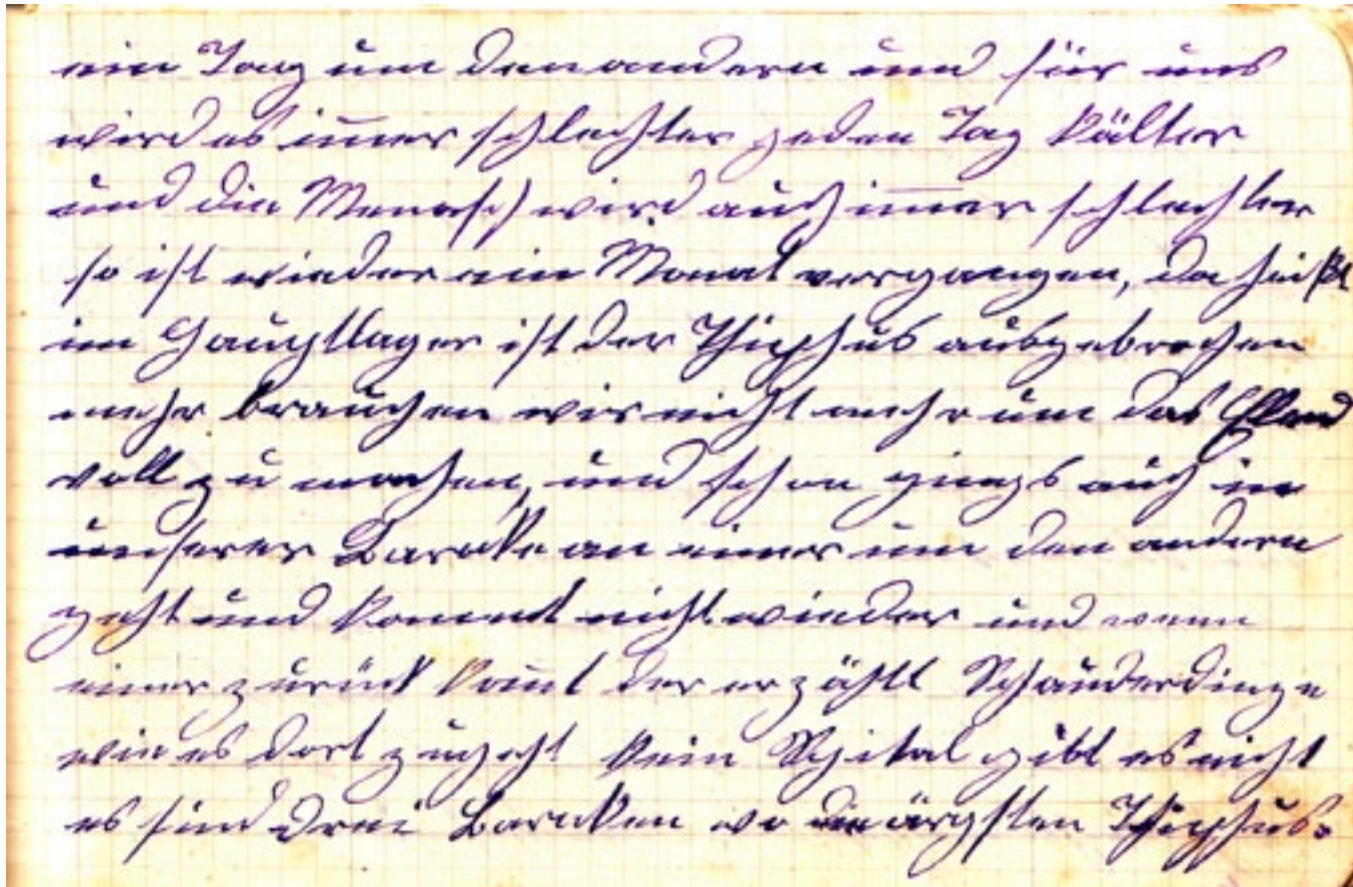 ein Tag um den andern und für uns
wird es im̄er schlechter jeden Tag kälter
und die Menasch wird auch im̄er schlechter
so ist wieder ein Monat vergangen, da heißt
im Hauptlager ist der Thiphus ausgebrochen
mehr brauchen wir nicht mehr um das Ellend
voll zu machen, und schon giengs auch in
unserer Baracke an einer um den andern
geht und kommt nicht wieder und wenn
einer zurück kom̄t der erzählt Schauderdinge
wie es dort zugeht kein Spital gibt es nicht
es sind drei Baracken wo die ärgsten Thiphus.